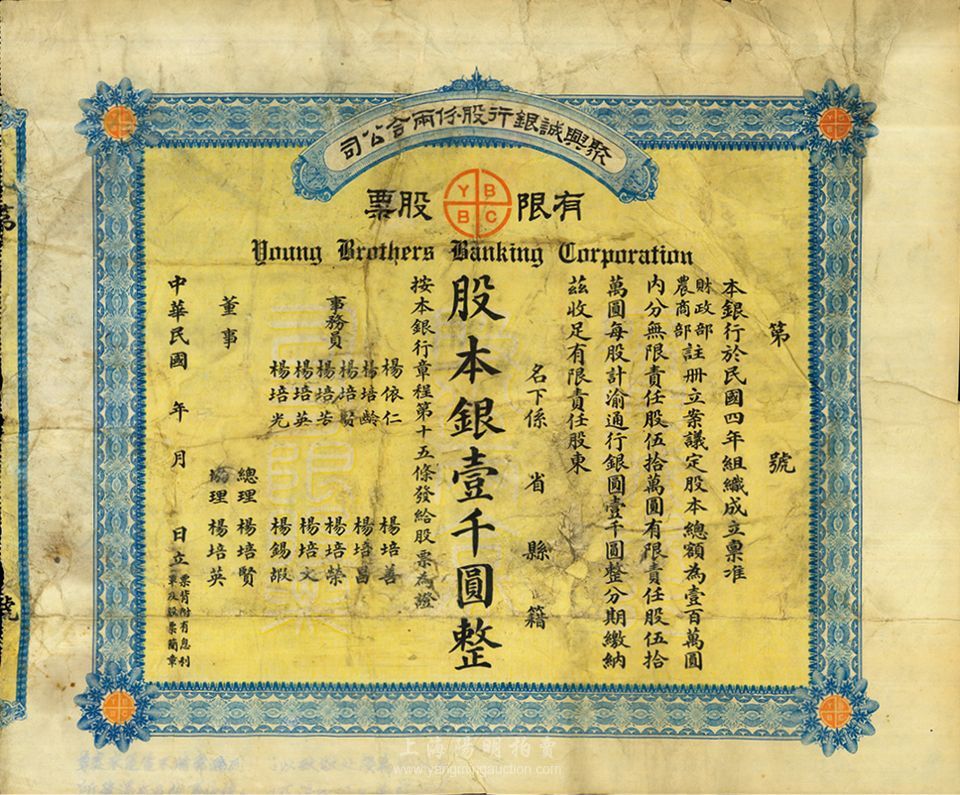 聚興誠銀行股份兩合公司
有限 股票
Y B
B C
Young Brothers Banking Corporation
第 號
本銀行於民國四年組織成立稟准
財政部
農商部
註冊立案議定股本總額為壹百萬圓
內分無限責任股伍拾萬圓有限責任股伍拾
萬圓每股計渝通行銀圓壹千圓整分期繳納
茲收足有限責任股東
名下係 省 縣 籍
股本銀壹千圓整
按本銀行章程第十五條發給股票為證
事務員
楊依仁
楊培齡
楊培賢
楊培英
楊培光
楊培善
楊培昌
楊培榮
楊培文
楊錫嘏
董事
總理 楊培賢
協理 楊培英
中華民國 年 月 日立
票背附有息利
單及股票簡章
第
號
上海陽明拍賣
www.yangmingauction.com